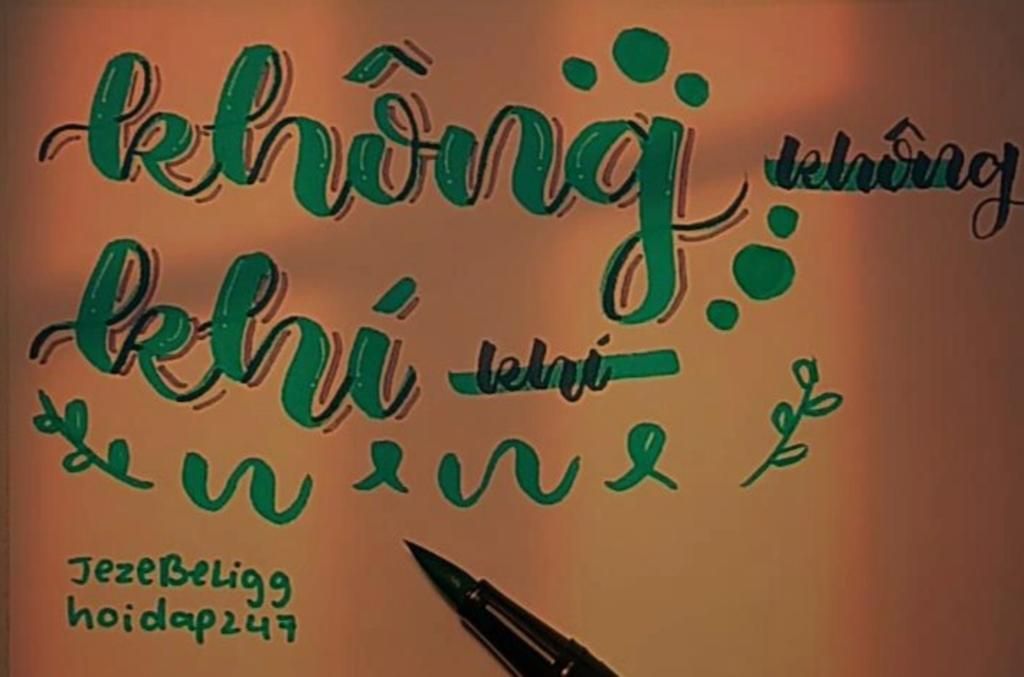 không
không
khí
khí
JezeBeLigg
hoidap247